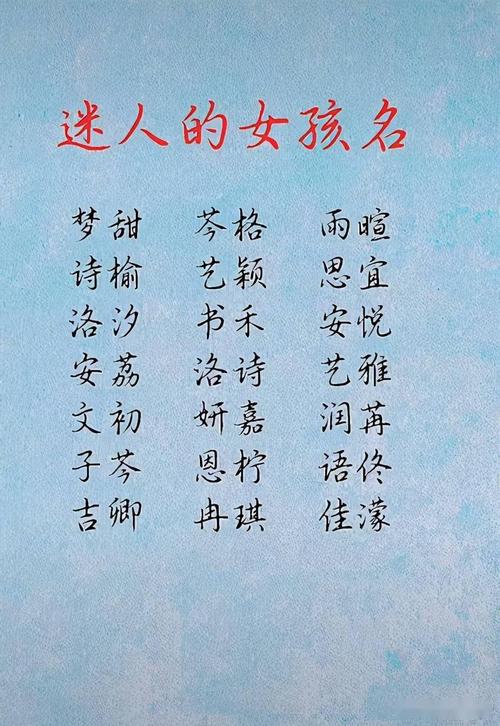 迷人的女孩名
梦甜 芩格 雨暄
诗榆 艺颖 思宜
洛汐 书禾 安悦
安荔 洛诗 艺雅
文初 妍嘉 润苒
子芩 恩柠 语佟
吉卿 冉琪 佳濛